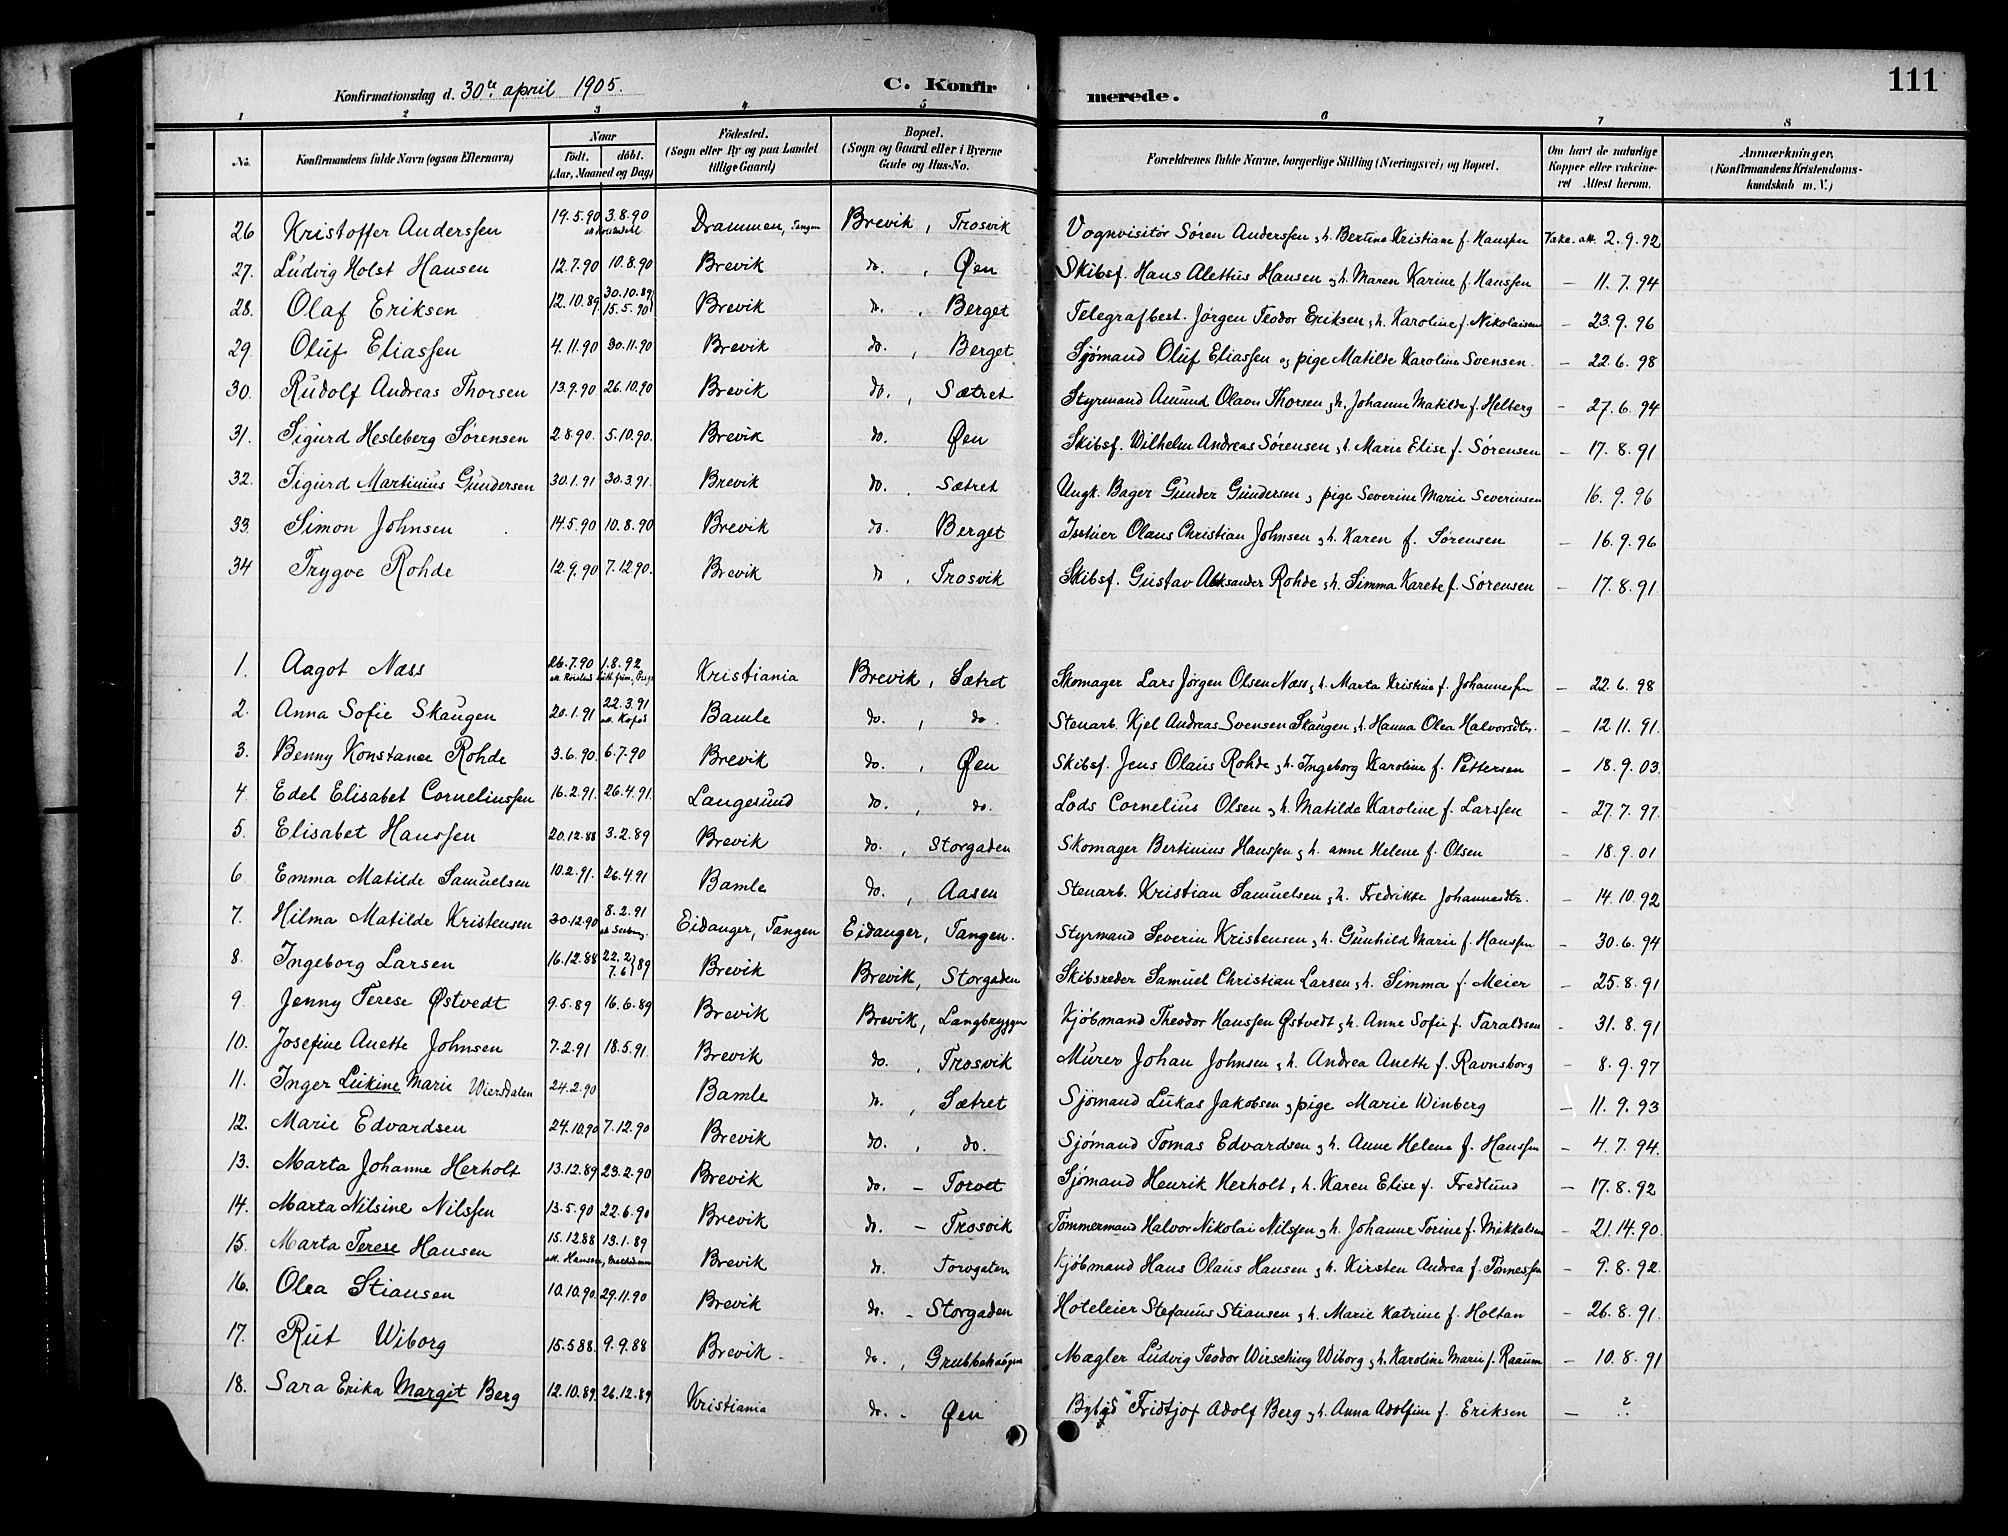 111
Konfirmationsdag d. 30te april 1905. C. Konfirmerede.
1 2 3 4 5 6 7 8
No. Konfirmandens fulde Navn (ogsaa Efternavn) Naar født. døbt. (Aar, Maaned og Dag) Fødested. (Sogn eller By og paa Landet tillige Gaard) Bopæl. (Sogn og Gaard eller i Byerne Gade og Hus-No. Forældrenes fulde Navne, borgerlige Stilling (Næringsvei) og Bopæl. Om havt de naturlige Kopper eller vakcineret Attest herom. Anmærkninger, (Konfirmandens Kristendomskundskab m. V.)
26 Kristoffer Anderssen 19.5.90 3.8.90 Drammen, Tangen Brevik, Trosvik Vognvisitør Søren Anderssen, h. Bertine Kristiane f. Hanssen Vakc. att. 2.9.92
27. Ludvig Holst Hansen 12.7.90 10.8.90 Brevik do. , Øen Skibsf. Hans Alettus Hansen, h. Maren Karine f. Hanssen — 11.7.94
28. Olaf Eriksen 12.10.89 30.10.89 15.5.90 Brevik do. , Berget Telegrafbest. Jørgen Teodor Eriksen, h. Karoline f. Nikolaisen — 23.9.96
29. Oluf Eliassen 4.11.90 30.11.90 Brevik do. , Berget Sjømand Oluf Eliassen og pige Matilde Karoline Svensen. — 22.6.98
30. Rudolf Andreas Thorsen 13.9.90 26.10.90 Brevik do. , Sætret Styrmand Amund Olavus Thorsen, h. Johanne Matilde f. Helberg — 27.6.94
31. Sigurd Hesleberg Sørensen 2.8.90. 5.10.90. Brevik do. Øen Skibsf. Wilhelm Andreas Sørensen, h. Marie Elise f. Sørensen — 17.8.91
32. Sigurd Martinius Gundersen 30.1.91 30.3.91. Brevik do. , Sætret Ungk. Bager Gunder Gundersen, pige Severine Marie Severinsen 16.9.96
33. Simon Johnsen 14.5.90 10.8.90 Brevik do. Berget Olaus Christian Johnsen, h. Karen f. Sørensen — 16.9.96
34 Trygve Rohde 12.9.90 7.12.90. Brevik do , Trosvik Skibsf. Gustav Aleksander Rohde, h. Simma Karete f. Sørensen — 17.8.91
1. Aagot Næss 26.7.90 1.8.92 Kristiania Brevik, Sætret Skomager Lars Jørgen Olsen Næss, h. Marta Kristine f. Johannessen — 22.6.98
2. Anna Sofie Skaugen 20.1.91 22.3.91 Bamle do. , do. Stenarb. Kjel Andreas Svensen Skaugen, h. Hanna Olea Halvorsdtr. — 12.11.91.
3. Benny Konstance Rohde 3.6.90. 6.7.90 Brevik do. , Øen Skibsf. Jens Olaus Rohde, h. Ingeborg Karoline f. Pettersen — 18.9.03.
4. Edel Elisabet Corneliussen 16.2.91. 26.4.91. Langesund do. , do. Lods Cornelius Olsen, h. Matilde Karoline f. Larssen — 27.7.97.
5. Elisabet Hanssen 20.12.88 3.2.89 Brevik do. , Storgaden Skomager Bertinius Hanssen, h. Anne Helene f. Olsen — 18.9.01
6. Emma Matilde Samuelsen 10.2.91. 26.4.91 Bamle do. , Aasen Stenarb. Kristian Samuelsen, h. Fredrikke Johannesdtr. — 14.10.92
7. Hilma Matilde Kristensen 30.12.90 8.2.91 Eidanger, Tangen Eidanger, Tangen. Styrmand Severin Kristensen, h. Gunhild Marie f. Hanssen — 30.6.94
8. Ingeborg Larsen 16.12.88 22.2 7.6 } 89 Brevik Brevik, Storgaden Skibsreder Samuel Christian Larsen, h. Simma f. Meier — 25.8.91
9. Jenny Terese Østvedt 9.5.89 16.6.89 Brevik Brevik, Langbryggen Kjøbmand Theodor Hanssen Østvedt, h. Anne Sofie f. Taraldsen — 31.8.91
10. Josefine Anette Johnsen 7.2.91 18.5.91. Brevik do. , Trosvik Murer Johan Johnsen, h. Andrea Anette f. Ravnsborg — 8.9.97
11. Inger Lukine Marie Wierdalen 24.2.90 Bamle do. , Sætret Sjømand Lukas Jakobsen, pige Marie Winberg — 11.9.93
12. Marie Edvardsen 24.10.90 7.12.90 Brevik do. , do. Sjømand Tomas Edvardsen, h. Anne Helene f. Hanssen — 4.7.94.
13. Marta Johanne Herholt 13.12.89 23.2.90 Brevik do. — Torvet Sjømand Henrik Herholt, h. Karen Elise f. Fredlund — 17.8.92
14. Marta Nilsine Nilssen 13.5.90 22.6.90 Brevik do. — Trosvik Tømmermand Halvor Nikolai Nilssen, h. Johanne Torine f. Mikkelsen — 21.14.90.
15. Marta Terese Hansen 15.12.88 13.1.89 Brevik do. Torvgaten Kjøbmand Hans Olaus Hansen, h. Kirsten Andrea f. Tønnessen — 9.8.92.
16. Olea Stiansen 10.10.90. 29.11.90 Brevik do. — Storgaden Hoteleier Stefanus Stiansen, h. Marie Katrine f. Holtan — 26.8.91.
17. Rut Wiborg 15.5.88. 9.9.88 Brevik do. , Grubbehaugen Mægler Ludvig Teodor Wirsching Wiborg, h. Karoline Marie f. Raaum — 10.8.91
18. Sara Erika Margit Berg 12.10.89. 26.12.89 Kristiania do. — Øen Fridtjof Adolf Berg, h. Anna Adolfine f. Eriksen — ?